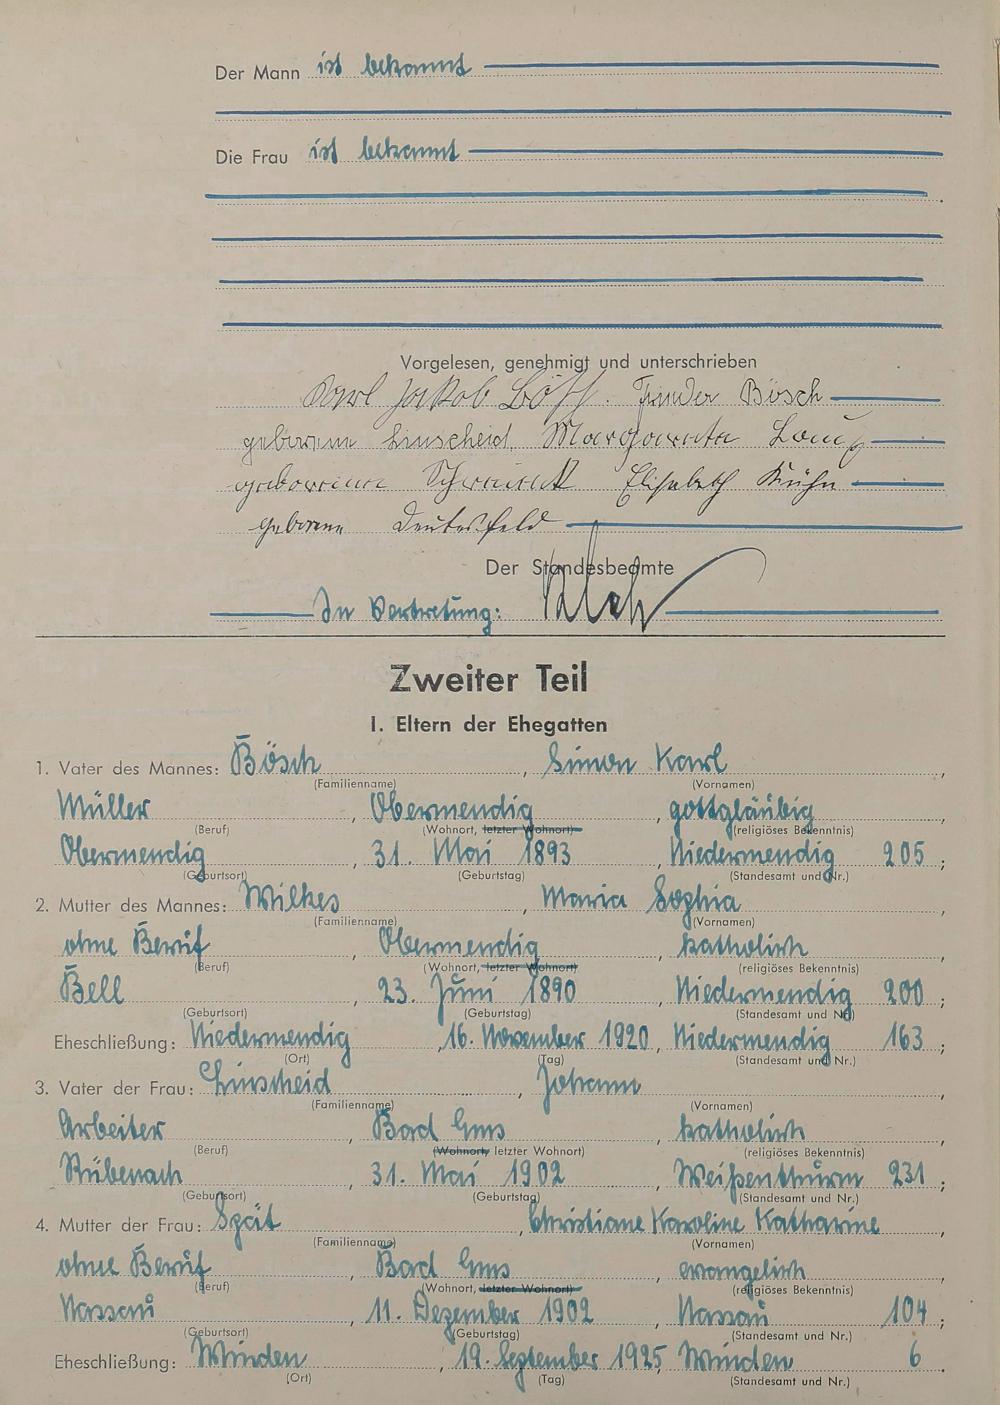 Der Mann ist bekannt
Die Frau ist bekannt
Vorgelesen, genehmigt und unterschrieben
Karl Jakob Bösch
geborene Linscheid Margareta
geborene Elisabeth Kühn
geborene
Der Standesbeamte
In Vertretung:
Zweiter Teil
I. Eltern der Ehegatten
1. Vater des Mannes: Bösch, Simon Karl,
(Familienname) (Vornamen)
Müller, Obermendig, gottgläubig,
(Beruf) (Wohnort, letzter Wohnort) (religiöses Bekenntnis)
Obermendig, 31. Mai 1893, Niedermendig 205;
(Geburtsort) (Geburtstag) (Standesamt und Nr.)
2. Mutter des Mannes: Wilkes, Maria Sophia,
(Familienname) (Vornamen)
ohne Beruf, Obermendig, katholisch,
(Beruf) (Wohnort, letzter Wohnort) (religiöses Bekenntnis)
Bell, 23. Juni 1890, Niedermendig 200;
(Geburtsort) (Geburtstag) (Standesamt und Nr.)
Eheschließung: Niedermendig, 16. November 1920, Niedermendig 163;
(Ort) (Tag) (Standesamt und Nr.)
3. Vater der Frau: Linscheid, Johann,
(Familienname) (Vornamen)
Arbeiter, Bad Ems, katholisch,
(Beruf) (Wohnort, letzter Wohnort) (religiöses Bekenntnis)
Rübenach, 31. Mai 1902, Weißenthurm 231;
(Geburtsort) (Geburtstag) (Standesamt und Nr.)
4. Mutter der Frau: Spät, Christiane Karoline Katharine
(Familienname) (Vornamen)
ohne Beruf, Bad Ems, evangelisch,
(Beruf) (Wohnort, letzter Wohnort) (religiöses Bekenntnis)
Nassau, 11. Dezember 1902, Nassau 104;
(Geburtsort) (Geburtstag) (Standesamt und Nr.)
Eheschließung: Winden, 19. September 1925 Winden 6.
(Ort) (Tag) (Standesamt und Nr.)